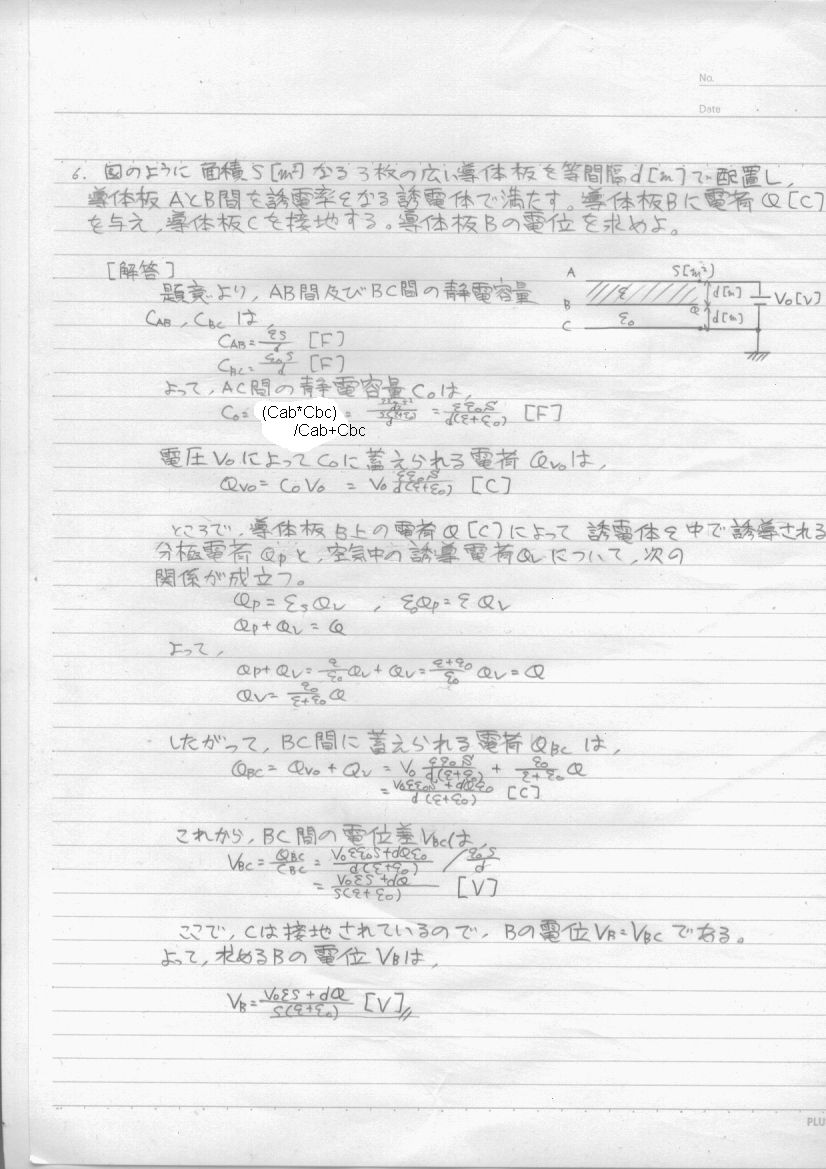 No.
Date
6. 図のように 面積 S[m²] なる 3枚の広い導体板を等間隔 d[m] で配置し,
導体板 AとB間を誘電率εなる誘電体で満たす。導体板Bに電荷 Q [C]
を与え, 導体板Cを接地する。導体板Bの電位を求めよ。
[解答]
題意より, AB間及びBC間の静電容量
C_AB, C_BC は,
C_AB = εS/d [F]
C_BC = ε₀S/d [F]
A
S[m²]
ε
d[m]
V₀[V]
B
Q
C
ε₀
d[m]
よって, AC間の静電容量 C₀は,
C₀ = (Cab*Cbc)
/Cab+Cbc
= = εε₀S/d(ε+ε₀) [F]
電圧 V₀ によって C₀に蓄えられる電荷 Q_V₀ は,
Q_V₀ = C₀V₀ = V₀ εε₀S/d(ε+ε₀) [C]
ところで, 導体板 B上の電荷 Q [C] によって 誘電体 ε 中で誘導される
分極電荷 Qp と, 空気中の誘導電荷 Qv について, 次の
関係が成立つ。
Qp = εs Qv , ε₀Qp = ε Qv
Qp + Qv = Q
よって,
Qp + Qv = ε/ε₀ Qv + Qv = ε+ε₀/ε₀ Qv = Q
Qv = ε₀/ε+ε₀ Q
したがって, BC間に蓄えられる電荷 Q_BC は,
Q_BC = Q_V₀ + Qv = V₀ εε₀S/d(ε+ε₀) + ε₀/ε+ε₀ Q
= V₀εε₀S + dQε₀/d(ε+ε₀) [C]
これから, BC間の電位差 V_BCは,
V_BC = Q_BC/C_BC = V₀εε₀S+dQε₀/d(ε+ε₀) / ε₀S/d
= V₀εS + dQ/S(ε+ε₀) [V]
ここで, Cは接地されているので, Bの電位 V_B = V_BC である。
よって, 求めるBの電位 V_Bは,
V_B = V₀εS + dQ/S(ε+ε₀) [V]
PLU